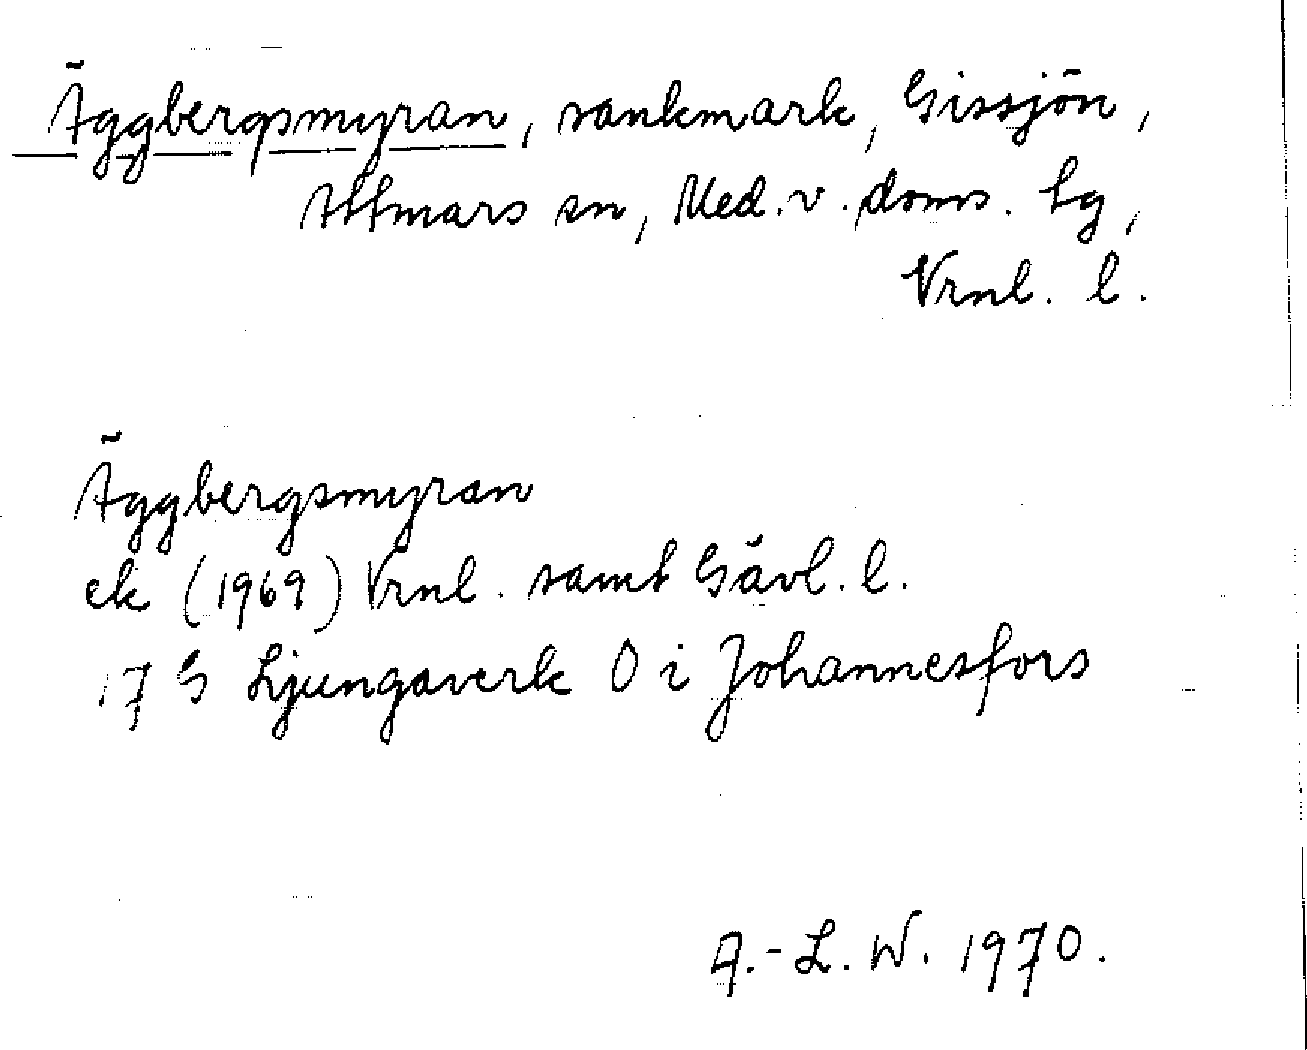 Äggbergsmyran, sankmark, Gissjön,
Attmars sn, Med. v. doms. tg,
Vrnl. l.
Äggbergsmyran
ek (1969) Vrnl. samt Gävl. l.
17 G Ljungaverk O i Johannesfors
A.-L. W. 1970.